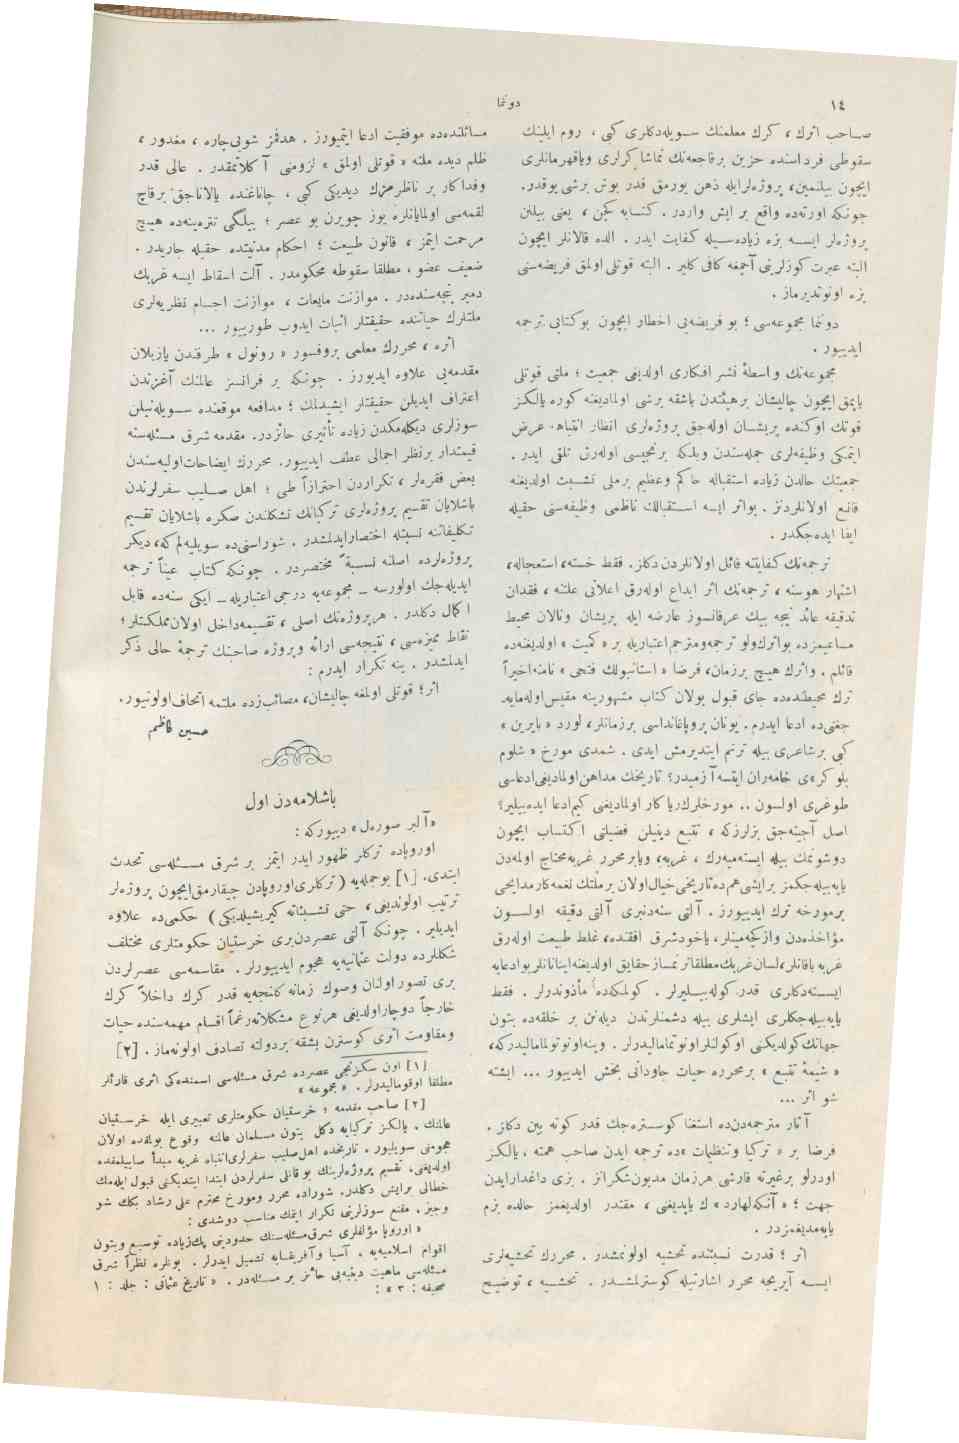 ١٤
دونما
صاحب اثرك ، كرك معلمنك سويله‌دكلرى كبى ، روم ايلينك
سقوطى فرداسنده حزين برفاجعه‌نك تماشا كرلرى وياقهرمانلرى
ايچون بيلنمين، پروژه‌لرايله ذهن يورمق قدر بوش برشى يوقدر.
چونكه اورته‌ده واقع بر ايش واردر . كتابه كچن ، يعنى بيلنن
پروژه‌لر ايسه بزه زياده‌سيله كفايت ايدر . الده قالانلر ايچون
البته عبرت كوزلرينى آچمغه كافى كلير . البته قوتلى اولمق فريضه‌سنى
بزه اونوتديرماز .
دونما مجموعه‌سى ؛ بو فريضه‌يى اخطار ايچون بوكتابى ترجمه
ايدييور .
مجموعه‌نك واسطهٔ نشر افكارى اولديغى جمعيت ؛ ملتى قوتلى
ياپمق ايچون چاليشان برهيئتدن باشقه برشى اولماديغنه كوره يالكز
قوتك اوكنده پريشان اوله‌جق پروژه‌لرى انظار انتباهه عرض
ايتمكى وظيفه‌لرى جمله‌سندن وبلكه برنجيسى اوله‌رق تلقى ايدر .
جمعيتك حالدن زياده استقباله حاكم وعظيم برملى تشبث اولديغنه
قانع اولانلردنز . بواثر ايسه استقبالك ناظمى وظيفه‌سنى حقيله
ايفا ايده‌جكدر .
ترجمه‌نك كفايتنه قائل اولانلردن دكلز . فقط خسته، استعجاله،
اشتهار هوسنه ، ترجمه‌نك اثر ابداع اوله‌رق اعلانى علتنه ، فقدان
تدقيقه عائد نيجه بيك عرفانسوز عارضه ايله پريشان ونالان محيط
مساعيمزده بواثرك‌ولو ترجمه‌ومترجم‌اعتباريله بر « كميت » اولديغنه‌ده
قائلم . واثرك هيچ برزمان، فرضا « استانبولك فتحى » نامنه‌اخيراً
ترك محيطنده‌ده جاى قبول بولان كتاب مشهورينه مقيس‌اوله‌مايه-
جغنى‌ده ادعا ايدرم . يونان پروپاغانداسى برزمانلر، لورد « بايرين »
كبى برشاعرى بيله ترنم ايتديرمش ايدى . شمدى مورخ « شلوم
برژه »ى خامه‌ران ايتسه آزميدر؟ تاريخك مداهن‌اولماديغى‌ادعاسى
طوغرى اولسون .. مورخلرك‌رياكار اولماديغنى كيم‌ادعا ايده‌بيلير؟
اصل آجينه‌جق بزلرزكه ، تتبع دينيلن فضيلتى اكتساب ايچون
دوشونمك بيله ايسته‌ميه‌رك ، غربه، وياپر محرر غربه‌محتاج اولمه‌دن
ياپه‌بيله‌جكمز برايشى‌هم‌ده‌تاريخى‌خيال‌اولان برملتك نغمه‌كارمدايحى
برمورخه ترك ايدييورز . آلتى سنه‌دنبرى آلتى دقيقه اولسون
مؤاخذه‌دن وازكچه‌مينلر، ياخودشرق افقنده، غلط طبيعت اوله‌رق
غربه باقانلر، لسان غربك‌مطلقاترجمان‌حقايق اولديغنه‌اينانانلربوادعايه
ايسته‌دكلرى قدر كوله‌بيليرلر . كولمكده‌ مأذوندرلر . فقط
ياپه‌بيله‌جكلرى ايشلرى بيله دشمنلرندن ديله‌نن بر خلقه‌ده بتون
جهانك‌كولديكنى اوكولنلراونوتمامالیدرلر . وينه‌اونوتولمامالیدركه،
« شيمهٔ تتبع » برمحرره حيات جاودانى بخش ايدييور ... ايشته
شو اثر ...
آثار مترجمه‌دن‌ده استغنا كوستره‌جك قدر كوته بين دكلز .
فرضا بر « تركيا وتنظيمات »ده ترجمه ايدن صاحب همته . يالكز
اودرلو برغيرته قارشى هرزمان مديون‌شكرانز . بزى داغدارايدن
جهت ؛ « آنكه‌لهارد » ك ياپديغنى ، مقتدر اولديغمز حالده بزم
ياپه‌مديغمزدر .
اثر ؛ قدرت نسبتنده تحشيه اولونمشدر . محررك تحشيه‌لرى
ايسه آيريجه محرر اشارتيله كوسترلمشدر . تحشيه ، توضيح
مسائلنده‌ده موفقيت ادعا ايتميورز . هدفمز شوبى‌چاره ، مغدور ،
ظلم ديده ملته « قوتلى اولمق » لزومنى آكلاتمقدر . عالى قدر
وفداكار بر ناظرمزك ديديكى كبى ، چاناغنده يالاناجق برقاچ
لقمه‌سى اولمايانلره يوز چويرن بو عصر ؛ بيلكى نتره‌ينه‌ده هيچ
مرحمت ايتمز ، قانون طبيعت ؛ احكام مدنيتده حقيله جاريدر .
ضعيف عضو ، مطلقا سقوطه محكومدر . آلت اسقاط ايسه غربك
دمير پنجه‌سنده‌در . موازنت مايعات ، موازنت اجسام نظريه‌لرى
ملتلرك حياتنده حقيقتلر اثبات ايدوب طورييور ...
اثره ، محررك معلمى پروفسور « رونول » طرفندن يازيلان
مقدمه‌يى علاوه ايديورز . چونكه بر فرانسز عالمنك آغزندن
اعتراف ايديلن حقيقتلر ايشيدلمك ؛ مدافعه موقعنده سويله‌نيلن
سوزلرى ديكله‌مكدن زياده تأثيرى حائزدر . مقدمه شرق مسئله‌سنه
قيمتدار برنظر اجمالى عطف ايدييور . محررك ايضاحات‌اوليه‌سندن
بعض فقره‌لر ، تكراردن احترازاً طى ؛ اهل صليب سفرلرندن
باشلايان تقسيم پروژه‌لرى تركيانك تشكلندن صكره باشلايان تقسيم
تكليفاتنه نسبتله اختصارايدلمشدر . شوراسنى‌ده سويليه‌لم‌كه، ديكر
پروژه‌لرده اصلنه نسبةً مختصردر . چونكه كتاب عيناً ترجمه
ايديله‌جك اولورسه ــ مجموعه‌يه درجى اعتباريله ــ ايكى سنه‌ده قابل
اكمال دكلدر . هرپروژه‌نك اصلى ، تقسيمه‌داخل اولان‌مملكتلر؛
نقاط مميزه‌سى ، نتيجه‌سى ارائه وپروژه صاحبنك ترجمهٔ حالى ذكر
ايدلمشدر . ينه تكرار ايدرم :
اثر؛ قوتلى اولمغه چاليشان، مصائب‌زده ملتمه اتحاف‌اولونيور .
حسين كاظم
باشلامه‌دن اول
« آلبر سوره‌ل » دييوركه :
اوروپاده تركلر ظهور ايدر ايتمز بر شرق مسئله‌سى تحدث
ايتدى . [١] بوجمله‌يه ( تركلرى‌اوروپادن چيقارمق‌ايچون پروژه‌لر
ترتيب اولونديغى ، حتى تشبثاته كيريشيلديكى ) حكمى‌ده علاوه
ايديلير . چونكه آلتى عصردن‌برى خرستيان حكومتلرى مختلف
شكللرده دولت عثمانيه‌يه هجوم ايدييورلر . مقاسمه‌سى عصرلردن
برى تصور اولنان وصوك زمانه كلنجه‌يه قدر كرك داخلاً كرك
خارجاً دوچاراولديغى هرنوع مشكلاته‌رغماً اقسام مهمه‌سنده حيات
ومقاومت اثرى كوسترن بشقه بردولته تصادف اولونه‌ماز . [٢]
[١] اون سكزنجى عصرده شرق مسئله‌سى اسمنده‌كى اثرى قارئلر
مطلقا اوقوماليدرلر . « مجموعه »
[٢] صاحب مقدمه ؛ خرستيان حكومتلرى تعبيرى ايله خرستيان
عالمنك ، يالكز تركيايه دكل بتون مسلمان عالمنه وقوع بولقده اولان
هجومنى سويليور . تاريخده اهل‌صليب سفرلرى‌انتباه غربه مبدأ صاييلمقده
اولديغنى، تقسيم پروژه‌لرينك بوقانلى سفرلردن ابتدا ايتديكنى قبول ايله‌مك
خطالى برايش دكلدر. شوراده محرر ومورخ محترم على رشاد بكك شو
وجيز ، مقنع سوزلرينى تكرار ايتمك مناسب دوشدى :
« اوروپا مؤلفلرى شرق‌مسئله‌سنك حدودينى پك‌زياده توسيع وبتون
اقوام اسلاميه‌يه . آسيا وآفريقايه تشميل ايدرلر . بونلره نظراً شرق
مسئله‌سى ماهيت دينيه‌يى حائز بر مسئله‌در . « تاريخ عثمانى : جلد : ١
صحيفه : ٣ » :